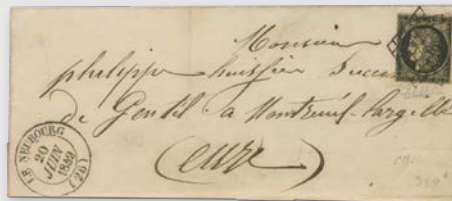 Monsieur
philippe huissier Succ
de Gentil a Montreuil-largillé
(eure)
LE NEUBOURG
20
JUIN
1849
(26)